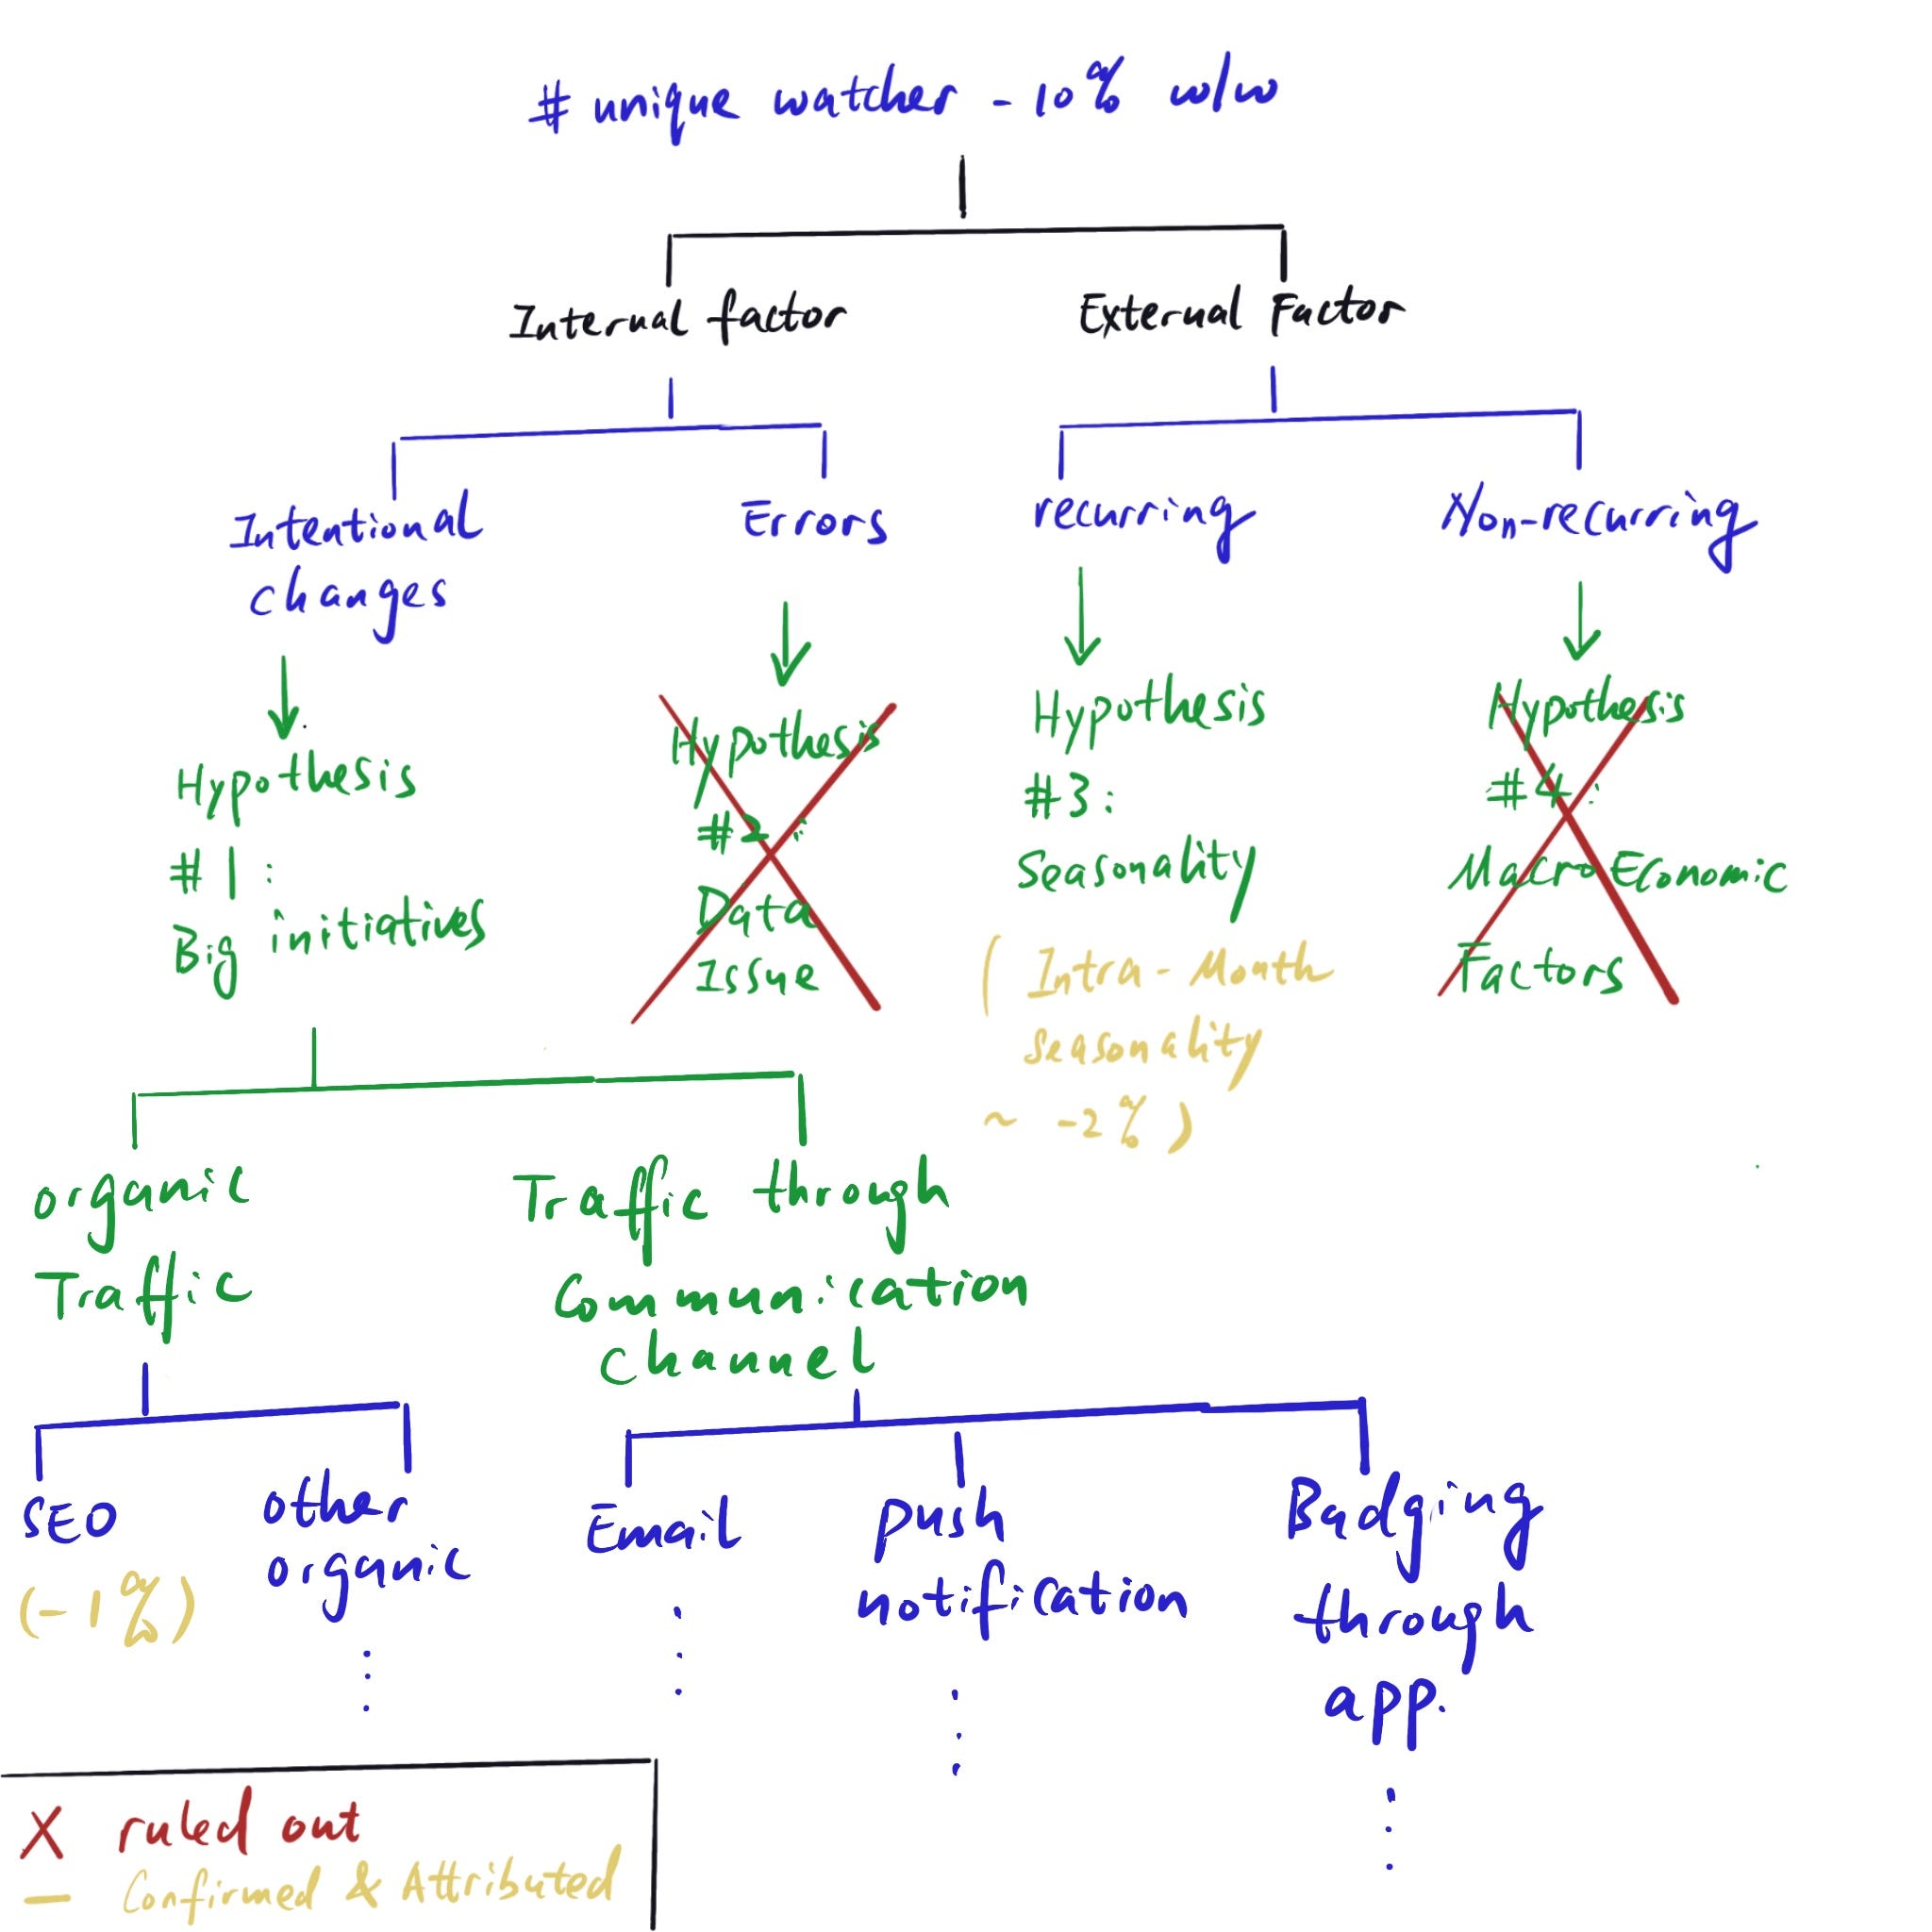 # unique watcher - 10% w/w
Internal factor
External Factor
Intentional
changes
Errors
recurring
Non-recurring
Hypothesis
#1:
Big initiatives
Hypothesis
#2:
Data
Issue
Hypothesis
#3:
Seasonality
( Intra-Month
seasonality
~ -2% )
Hypothesis
#4:
Macro Economic
Factors
organic
Traffic
Traffic through
Communication
channel
SEO
(-1%)
other
organic
Email
push
notification
Badging
through
app.
X ruled out
— Confirmed & Attributed